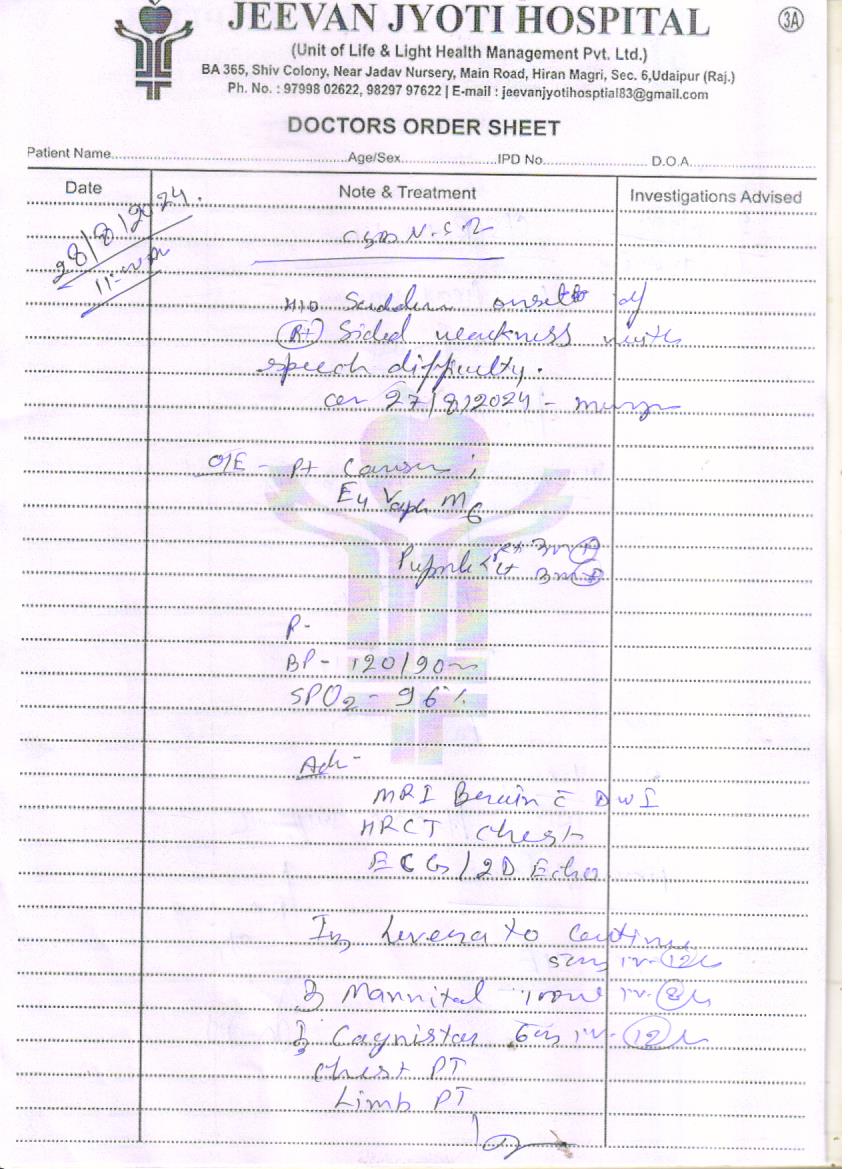 3A
JEEVAN JYOTI HOSPITAL
(Unit of Life & Light Health Management Pvt. Ltd.)
BA 365, Shiv Colony, Near Jadav Nursery, Main Road, Hiran Magri, Sec. 6,Udaipur (Raj.)
Ph. No. : 97998 02622, 98297 97622 | E-mail : jeevanjyotihosptial83@gmail.com
DOCTORS ORDER SHEET
Patient Name Age/Sex IPD No. D.O.A.
Date Note & Treatment Investigations Advised
28/8/2024.
N.S.
H/O Sudden onset of
Rt Sided weakness with
speech difficulty.
on 27/8/2024 -
O/E - Pt
E4 M6
Rt
Lt
P-
BP - 120/90
SPO2 - 96%
Adv -
MRI Brain c̄ DWI
HRCT chest
ECG / 2D Echo
Inj Levera to continue
iv. 12
Mannitol 100ml iv. 8
iv. 12
Chest PT
Limb PT